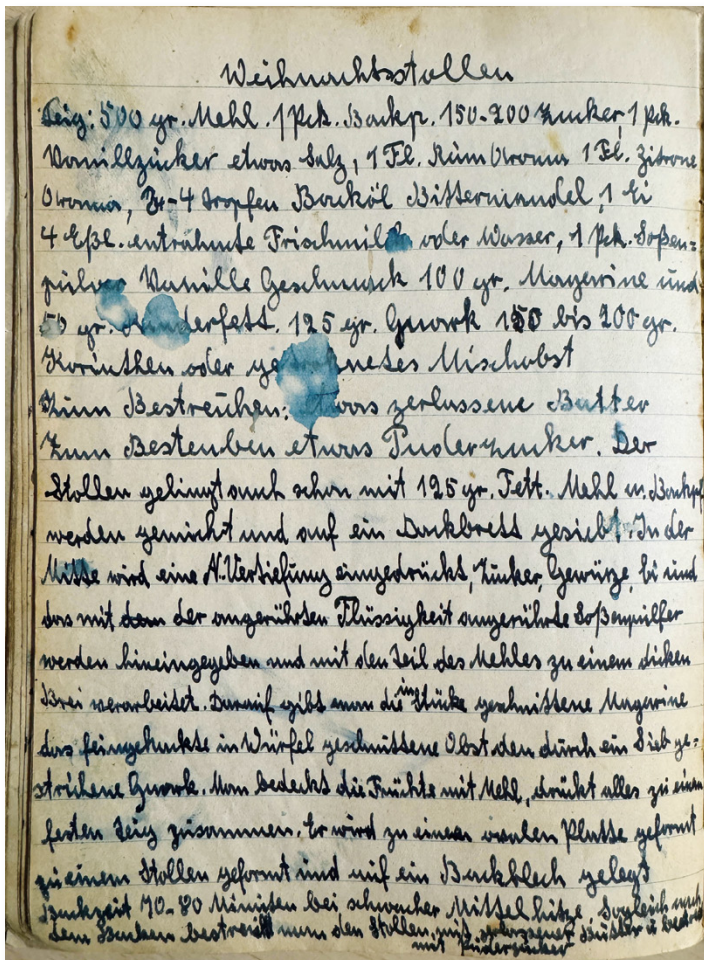 Weihnachtsstollen
Teig: 500 gr. Mehl. 1 Pck. Backp. 150-200 Zucker, 1 Pck.
Vanillzucker etwas Salz, 1 Fl. Rum Aroma 1 Fl. Zitrone
Aroma, 3-4 Tropfen Backöl Bittermandel, 1 Ei
4 Eßl. entrahmte Frischmilch oder Wasser, 1 Pck. Soßen=
pulver Vanille Geschmack 100 gr. Magerine und
50 gr. Rinderfett. 125 gr. Quark 150 bis 200 gr.
Korinthen oder getrocknetes Mischobst
Zum Bestreichen: etwas zerlassene Butter
Zum Besteuben etwas Puderzucker. Der
Stollen gelingt auch schon mit 125 gr. Fett. Mehl u. Backp
werden gemischt und auf ein Backbrett gesiebt. In der
Mitte wird eine Vertiefung eingedrückt, Zucker, Gewürze, Ei und
das mit der angerührten Flüssigkeit angerührte Soßenpulfer
werden hineingegeben und mit den Teil des Mehles zu einem dicken
Brei verarbeitet. Darauf gibt man die in Stücke geschnittene Magerine
das feingehackte in Würfel geschnittene Obst den durch ein Sieb ge=
strichene Quark. Man bedeckt die Früchte mit Mehl, drückt alles zu einem
festen Teig zusammen. Er wird zu einer ovalen Platte geformt
zu einem Stollen geformt und auf ein Backblech gelegt
Backzeit 70-80 Minuten bei schwacher Mittelhitze. Sogleich nach
dem Backen bestreicht man den Stollen mit zerlassener Butter u
mit Puderzucker